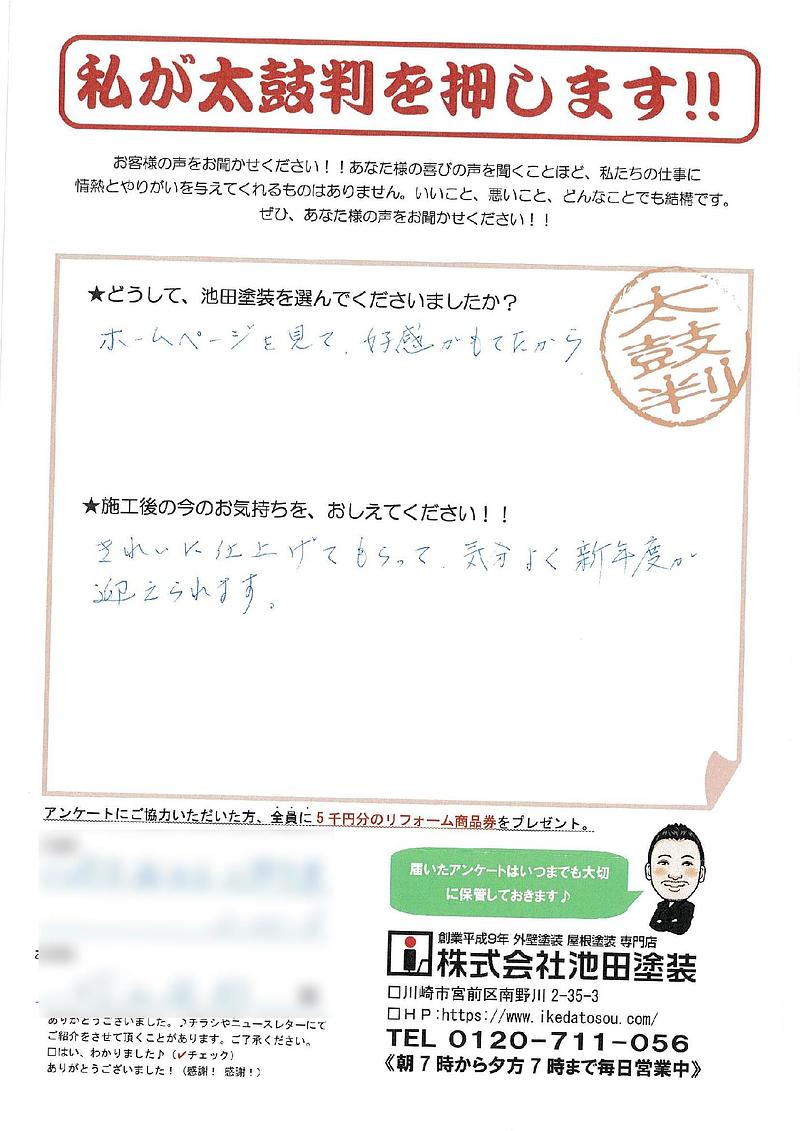 私が太鼓判を押します!!
お客様の声をお聞かせください！！あなた様の喜びの声を聞くことほど、私たちの仕事に
情熱とやりがいを与えてくれるものはありません。いいこと、悪いこと、どんなことでも結構です。
ぜひ、あなた様の声をお聞かせください！！
★どうして、池田塗装を選んでくださいましたか？
ホームページを見て、好感がもてたから
太鼓判
★施工後の今のお気持ちを、おしえてください！！
きれいに仕上げてもらって、気分よく新年度が
迎えられます。
アンケートにご協力いただいた方、全員に5千円分のリフォーム商品券をプレゼント。
届いたアンケートはいつまでも大切
に保管しておきます♪
創業平成9年 外壁塗装 屋根塗装 専門店
株式会社池田塗装
□川崎市宮前区南野川 2-35-3
□HP:https://www.ikedatosou.com/
TEL 0120-711-056
《朝7時から夕方7時まで毎日営業中》
ありがとうございました。♪チラシやニュースレターにて
ご紹介をさせて頂くことがあります。ご了承ください。
□はい、わかりました♪（✓チェック）
ありがとうございました！（感謝！ 感謝！）